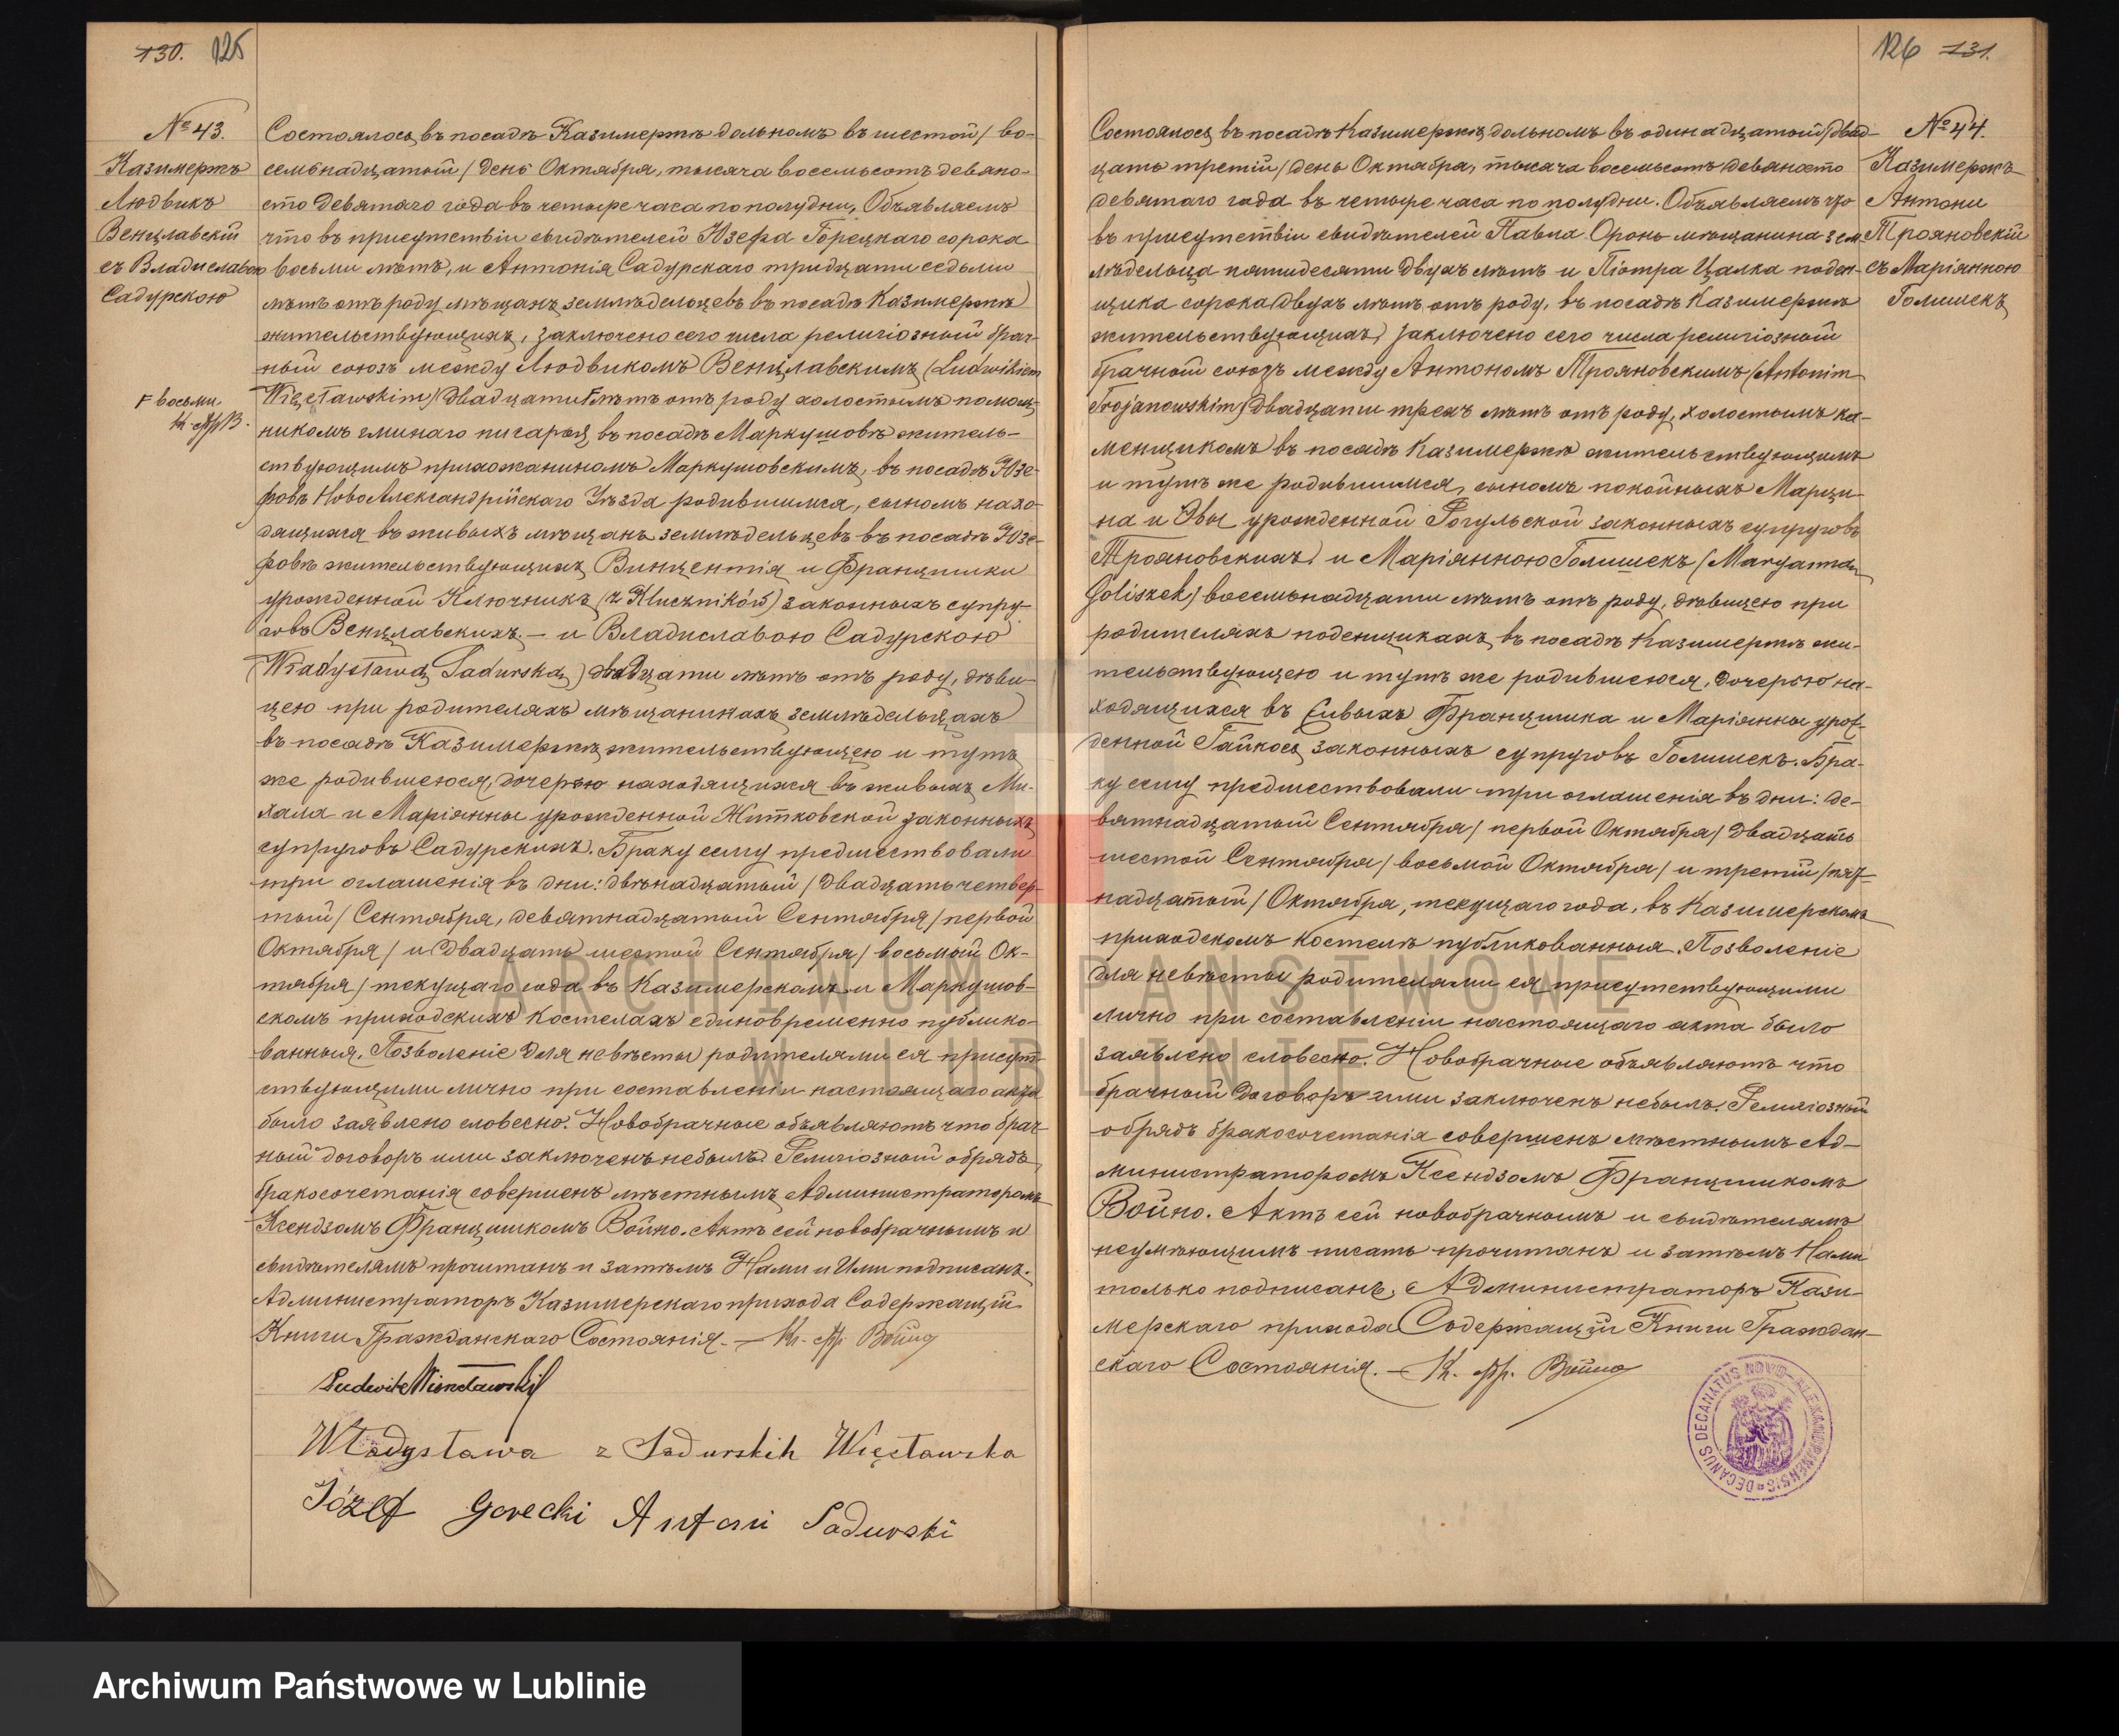 130. 125
№ 43.
Казимержъ
Людвикъ
Венцлавскій
съ Владиславою
Садурскою
Состоялось въ посадѣ Казимержѣ дольномъ въ шестой / во-
семьнадцатый / день Октября, тысяча восемьсотъ девяно-
сто девятаго года въ четыре часа по полудни, Объявляемъ
что въ присутствіи свидѣтелей Юзефа Горецкаго сорока
восьми лѣтъ, и Антонія Садурскаго тридцати седьми
лѣтъ отъ роду мѣщанъ земледѣльцевъ въ посадѣ Казимержѣ
жительствующихъ, заключено сего числа религіозный брач-
ный союзъ между Людвикомъ Венцлавскимъ (Ludwikiem
Więcławskim) двадцати F лѣтъ отъ роду холостымъ помощ-
F восьми
Кс. Фр. В.
никомъ гминаго писаря въ посадѣ Маркушовѣ житель-
ствующимъ прихожаниномъ Маркушовскимъ, въ посадѣ Юзе-
фовѣ Ново Александрійскаго Уѣзда родившимся, сыномъ нахо-
дящихся въ живыхъ мѣщанъ земледѣльцевъ въ посадѣ Юзе-
фовѣ жительствующихъ Винцентія и Францишки
урожденной Ключникъ (z Kluczników) законныхъ супру-
говъ Венцлавскихъ. — и Владиславою Садурскою
(Władysławą Sadurską) двадцати лѣтъ отъ роду, дѣви-
цею при родителяхъ мѣщанинахъ земледѣльцахъ
въ посадѣ Казимержѣ жительствующею и тутъ
же родившеюся, дочерью находящихся въ живыхъ Ми-
хала и Маріянны урожденной Житковской законныхъ
супруговъ Садурскихъ. Браку сему предшествовали
три оглашенія въ дни: двѣнадцатый / двадцать четвер-
тый / Сентября, девятнадцатый Сентября / первой
Октября / и двадцать шестой Сентября / восьмый Ок-
тября / текущаго года въ Казимерскомъ и Маркушов-
скомъ приходскихъ костелахъ единовременно публико-
ванныя. Позволеніе для невѣсты родителями ея присут-
ствующими лично при составленіи настоящаго акта
было заявлено словесно. Новобрачные объявляютъ что брач-
ный договоръ ими заключенъ небылъ. Религіозный обрядъ
бракосочетанія совершенъ мѣстнымъ Администраторомъ
Ксендзомъ Францишкомъ Войно. Актъ сей новобрачнымъ и
свидѣтелямъ прочитанъ и затѣмъ Нами и Ими подписанъ.
Администраторъ Казимерскаго прихода Содержащій
Книги Гражданскаго Состоянія. — Кс. Фр. Войно
Ludwik Więncławski
Władysława z Sadurskih Więcławska
Józef Gorecki Antoni Sadurski
126 131.
№ 44.
Казимержъ
Антони
Трояновскій
съ Маріянною
Голишекъ
Состоялось въ посадѣ Казимержѣ дольномъ въ одинадцатый / двад-
цать третій / день Октября, тысяча восемьсотъ девяносто
девятаго года въ четыре часа по полудни. Объявляемъ что
въ присутствіи свидѣтелей Павла Оронь мѣщанина зем-
ледѣльца пятидесяти двухъ лѣтъ и Піотра Цалка поден-
щика сорока двухъ лѣтъ отъ роду, въ посадѣ Казимержѣ
жительствующихъ, заключено сего числа религіозный
брачный союзъ между Антономъ Трояновскимъ (Antonim
Trojanowskim) двадцати трехъ лѣтъ отъ роду, холостымъ ка-
менщикомъ въ посадѣ Казимержѣ жительствующимъ
и тутъ же родившимся, сыномъ покойныхъ Марци-
на и Эвы урожденной Рогульской законныхъ супруговъ
Трояновскихъ) и Маріянною Голишекъ (Maryanną
Goliszek) восемьнадцати лѣтъ отъ роду, дѣвицею при
родителяхъ поденщикахъ въ посадѣ Казимержѣ жи-
тельствующею и тутъ же родившеюся, дочерью на-
ходящихся въ живыхъ Францишка и Маріянны урож-
денной Гайкось законныхъ супруговъ Голишекъ. Бра-
ку сему предшествовали три оглашенія въ дни: де-
вятнадцатый Сентября / первой Октября / двадцать
шестой Сентября / восьмой Октября / и третій / пят-
надцатый / Октября, текущаго года, въ Казимерскомъ
приходскомъ костелѣ публикованныя. Позволеніе
для невѣсты родителями ея присутствующими
лично при составленіи настоящаго акта было
заявлено словесно. Новобрачные объявляютъ что
брачный договоръ ими заключенъ небылъ. Религіозный
обрядъ бракосочетанія совершенъ мѣстнымъ Ад-
министраторомъ Ксендзомъ Францишкомъ
Войно. Актъ сей новобрачнымъ и свидѣтелямъ
неумѣющимъ писать прочитанъ и затѣмъ Нами
только подписанъ. Администраторъ Кази-
мерскаго прихода Содержащій Книги Граждан-
скаго Состоянія. — Кс. Фр. Войно
DECANUS DECANATUS NOVO-ALEXANDRINENSIS
ARCHIWUM PAŃSTWOWE
W LUBLINIE
Archiwum Państwowe w Lublinie